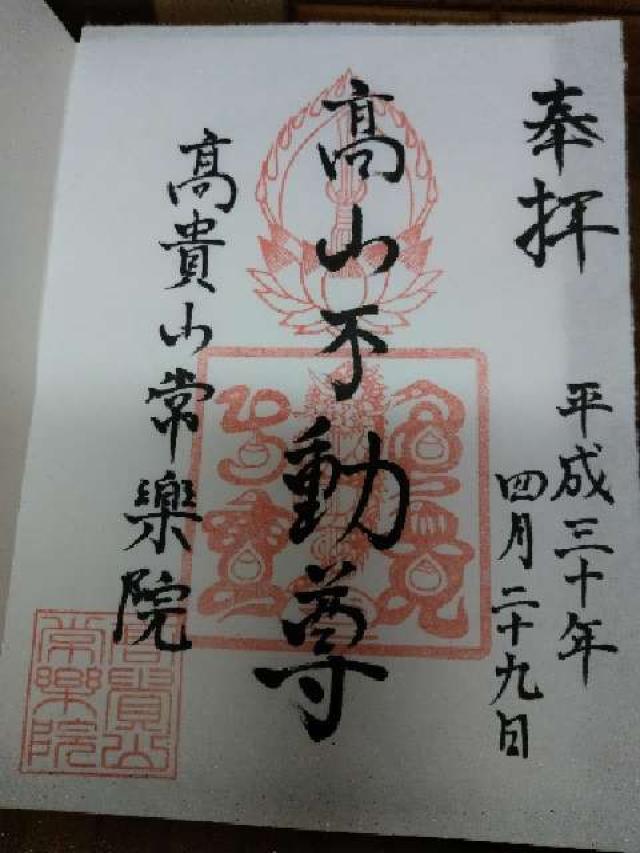 奉拝
平成三十年
四月二十九日
髙山不動尊
髙貴山常樂院
高貴山
常樂院